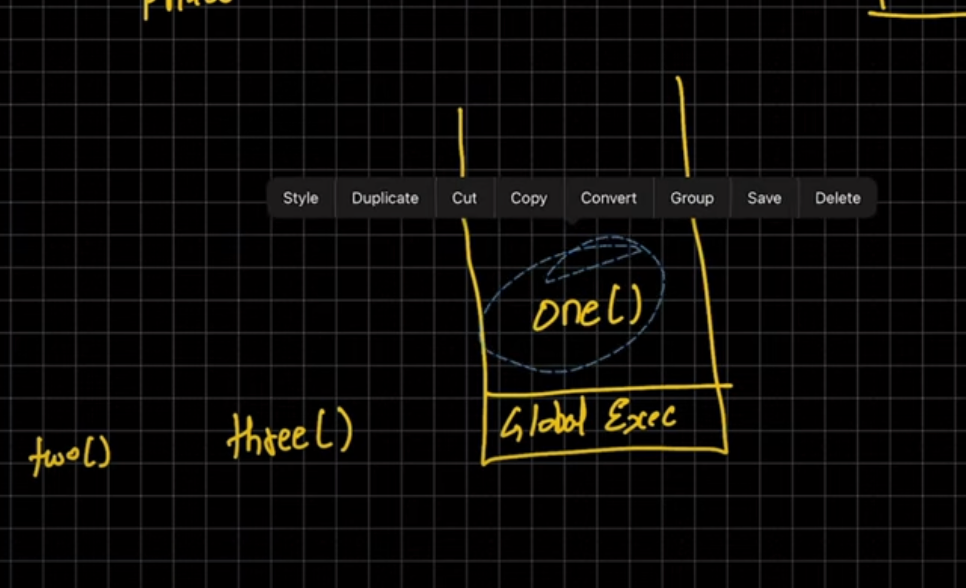 Style Duplicate Cut Copy Convert Group Save Delete
one()
Global Exec
two() three()